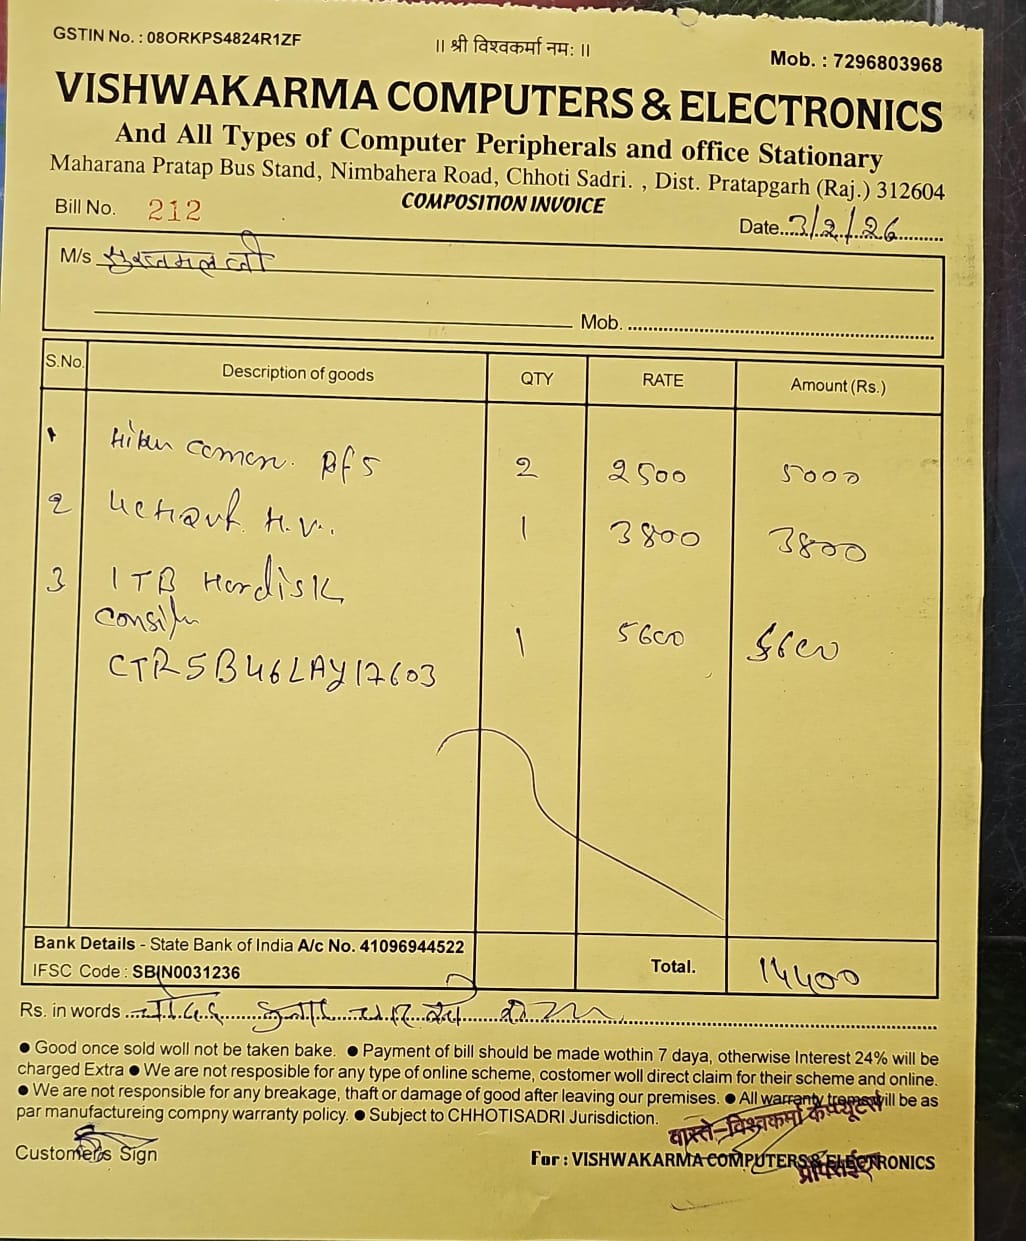 GSTIN No. : 08ORKPS4824R1ZF
|| श्री विश्वकर्मा नमः ||
Mob. : 7296803968
VISHWAKARMA COMPUTERS & ELECTRONICS
And All Types of Computer Peripherals and office Stationary
Maharana Pratap Bus Stand, Nimbahera Road, Chhoti Sadri. , Dist. Pratapgarh (Raj.) 312604
COMPOSITION INVOICE
Bill No. 212
Date..3/2/26
M/s
Mob.
S.No. Description of goods QTY RATE Amount (Rs.)
1 2 2500 5000
2 H.V. 1 3800 3800
3 1 TB Hardisk
1 5600 5600
CTR5B46LAY17603
Bank Details - State Bank of India A/c No. 41096944522
IFSC Code : SBIN0031236
Total. 14400
Rs. in words
● Good once sold woll not be taken bake. ● Payment of bill should be made wothin 7 daya, otherwise Interest 24% will be
charged Extra ● We are not resposible for any type of online scheme, costomer woll direct claim for their scheme and online.
● We are not responsible for any breakage, thaft or damage of good after leaving our premises. ● All warranty trems will be as
par manufactureing compny warranty policy. ● Subject to CHHOTISADRI Jurisdiction.
वास्ते-विश्वकर्मा कंप्यूटर्स
Customers Sign
For : VISHWAKARMA COMPUTERS & ELECTRONICS
प्रोपराईटर